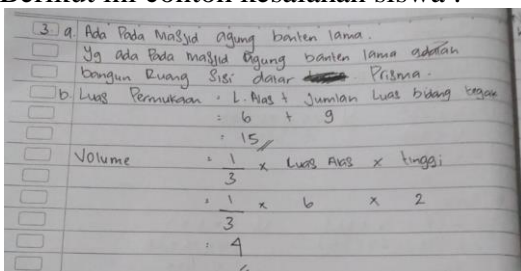 Berikut ini contoh kesalahan siswa :
3. a. Ada Pada Masjid agung banten lama.
Yg ada Pada masjid Agung banten lama adalah
bangun Ruang Sisi datar Prisma.
b. Luas Permukaan = L. Alas + Jumlah Luas bidang tegak
= 6 + 9
= 15 //
Volume = 1/3 x Luas Alas x tinggi
= 1/3 x 6 x 2
= 4